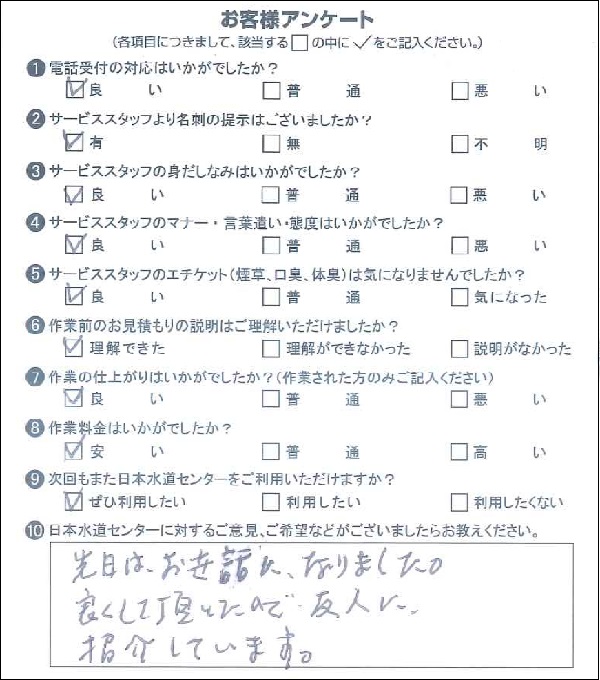 お客様アンケート
(各項目につきまして、該当する□の中に✓をご記入ください。)
1 電話受付の対応はいかがでしたか?
☑良い □普通 □悪い
2 サービススタッフより名刺の提示はございましたか?
☑有 □無 □不明
3 サービススタッフの身だしなみはいかがでしたか?
☑良い □普通 □悪い
4 サービススタッフのマナー・言葉遣い・態度はいかがでしたか?
☑良い □普通 □悪い
5 サービススタッフのエチケット(煙草、口臭、体臭)は気になりませんでしたか?
☑良い □普通 □気になった
6 作業前のお見積もりの説明はご理解いただけましたか?
☑理解できた □理解ができなかった □説明がなかった
7 作業の仕上がりはいかがでしたか?(作業された方のみご記入ください)
☑良い □普通 □悪い
8 作業料金はいかがでしたか?
☑安い □普通 □高い
9 次回もまた日本水道センターをご利用いただけますか?
☑ぜひ利用したい □利用したい □利用したくない
10 日本水道センターに対するご意見、ご希望などがございましたらお教えください。
先日は、お世話に、なりました。
良くして頂いたので、友人に、
紹介しています。